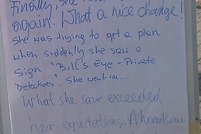 Finally, she
again. What a nice change!
She was trying to get a plan
when suddenly she saw a
sign "Bull's Eye - Private
Detective". She went in...
What she saw exceeded
her expectations. A